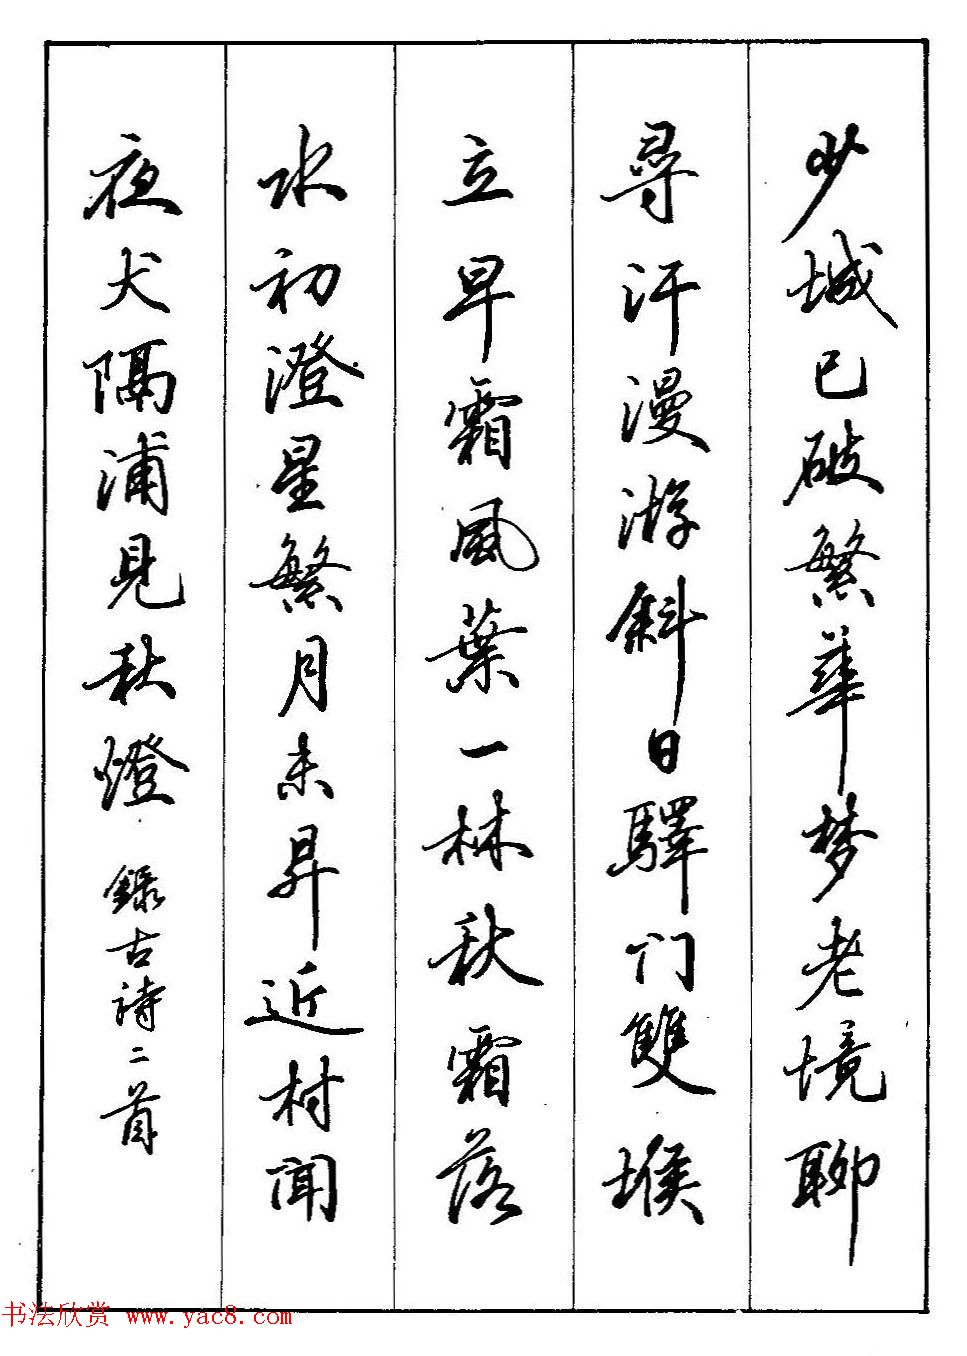 少城已破繁華梦老境聊
尋汗漫游斜日驛门雙堠
立早霜風葉一林秋霜落
水初澄星繁月未昇近村闻
夜犬隔浦見秋燈 錄古詩二首
书法欣赏 www.yac8.com